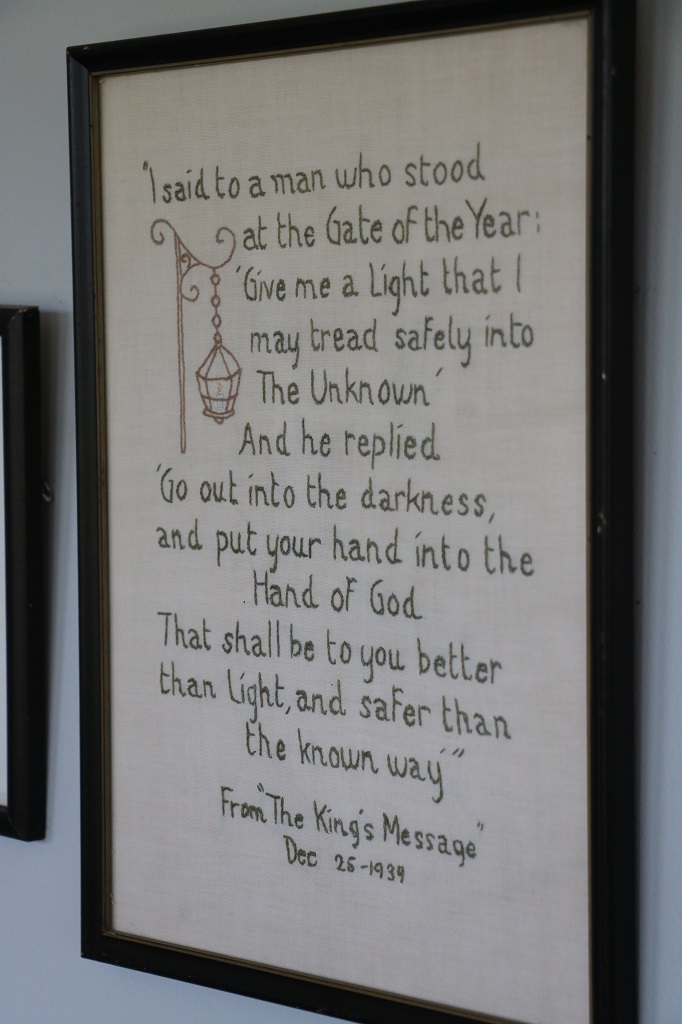 "I said to a man who stood
at the Gate of the Year:
'Give me a Light that I
may tread safely into
The Unknown'
And he replied
'Go out into the darkness,
and put your hand into the
Hand of God
That shall be to you better
than Light, and safer than
the known way'"
From "The King's Message"
Dec 25-1939